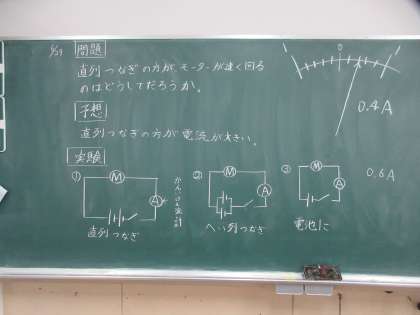 6/29 問題
直列つなぎの方が、モーターが速く回る
のはどうしてだろうか。
予想
直列つなぎの方が電流が大きい。
実験
① M A
かんい検流計
直列つなぎ
② M A
へい列つなぎ
③ M A
電池1こ
0
0.4A
0.6A